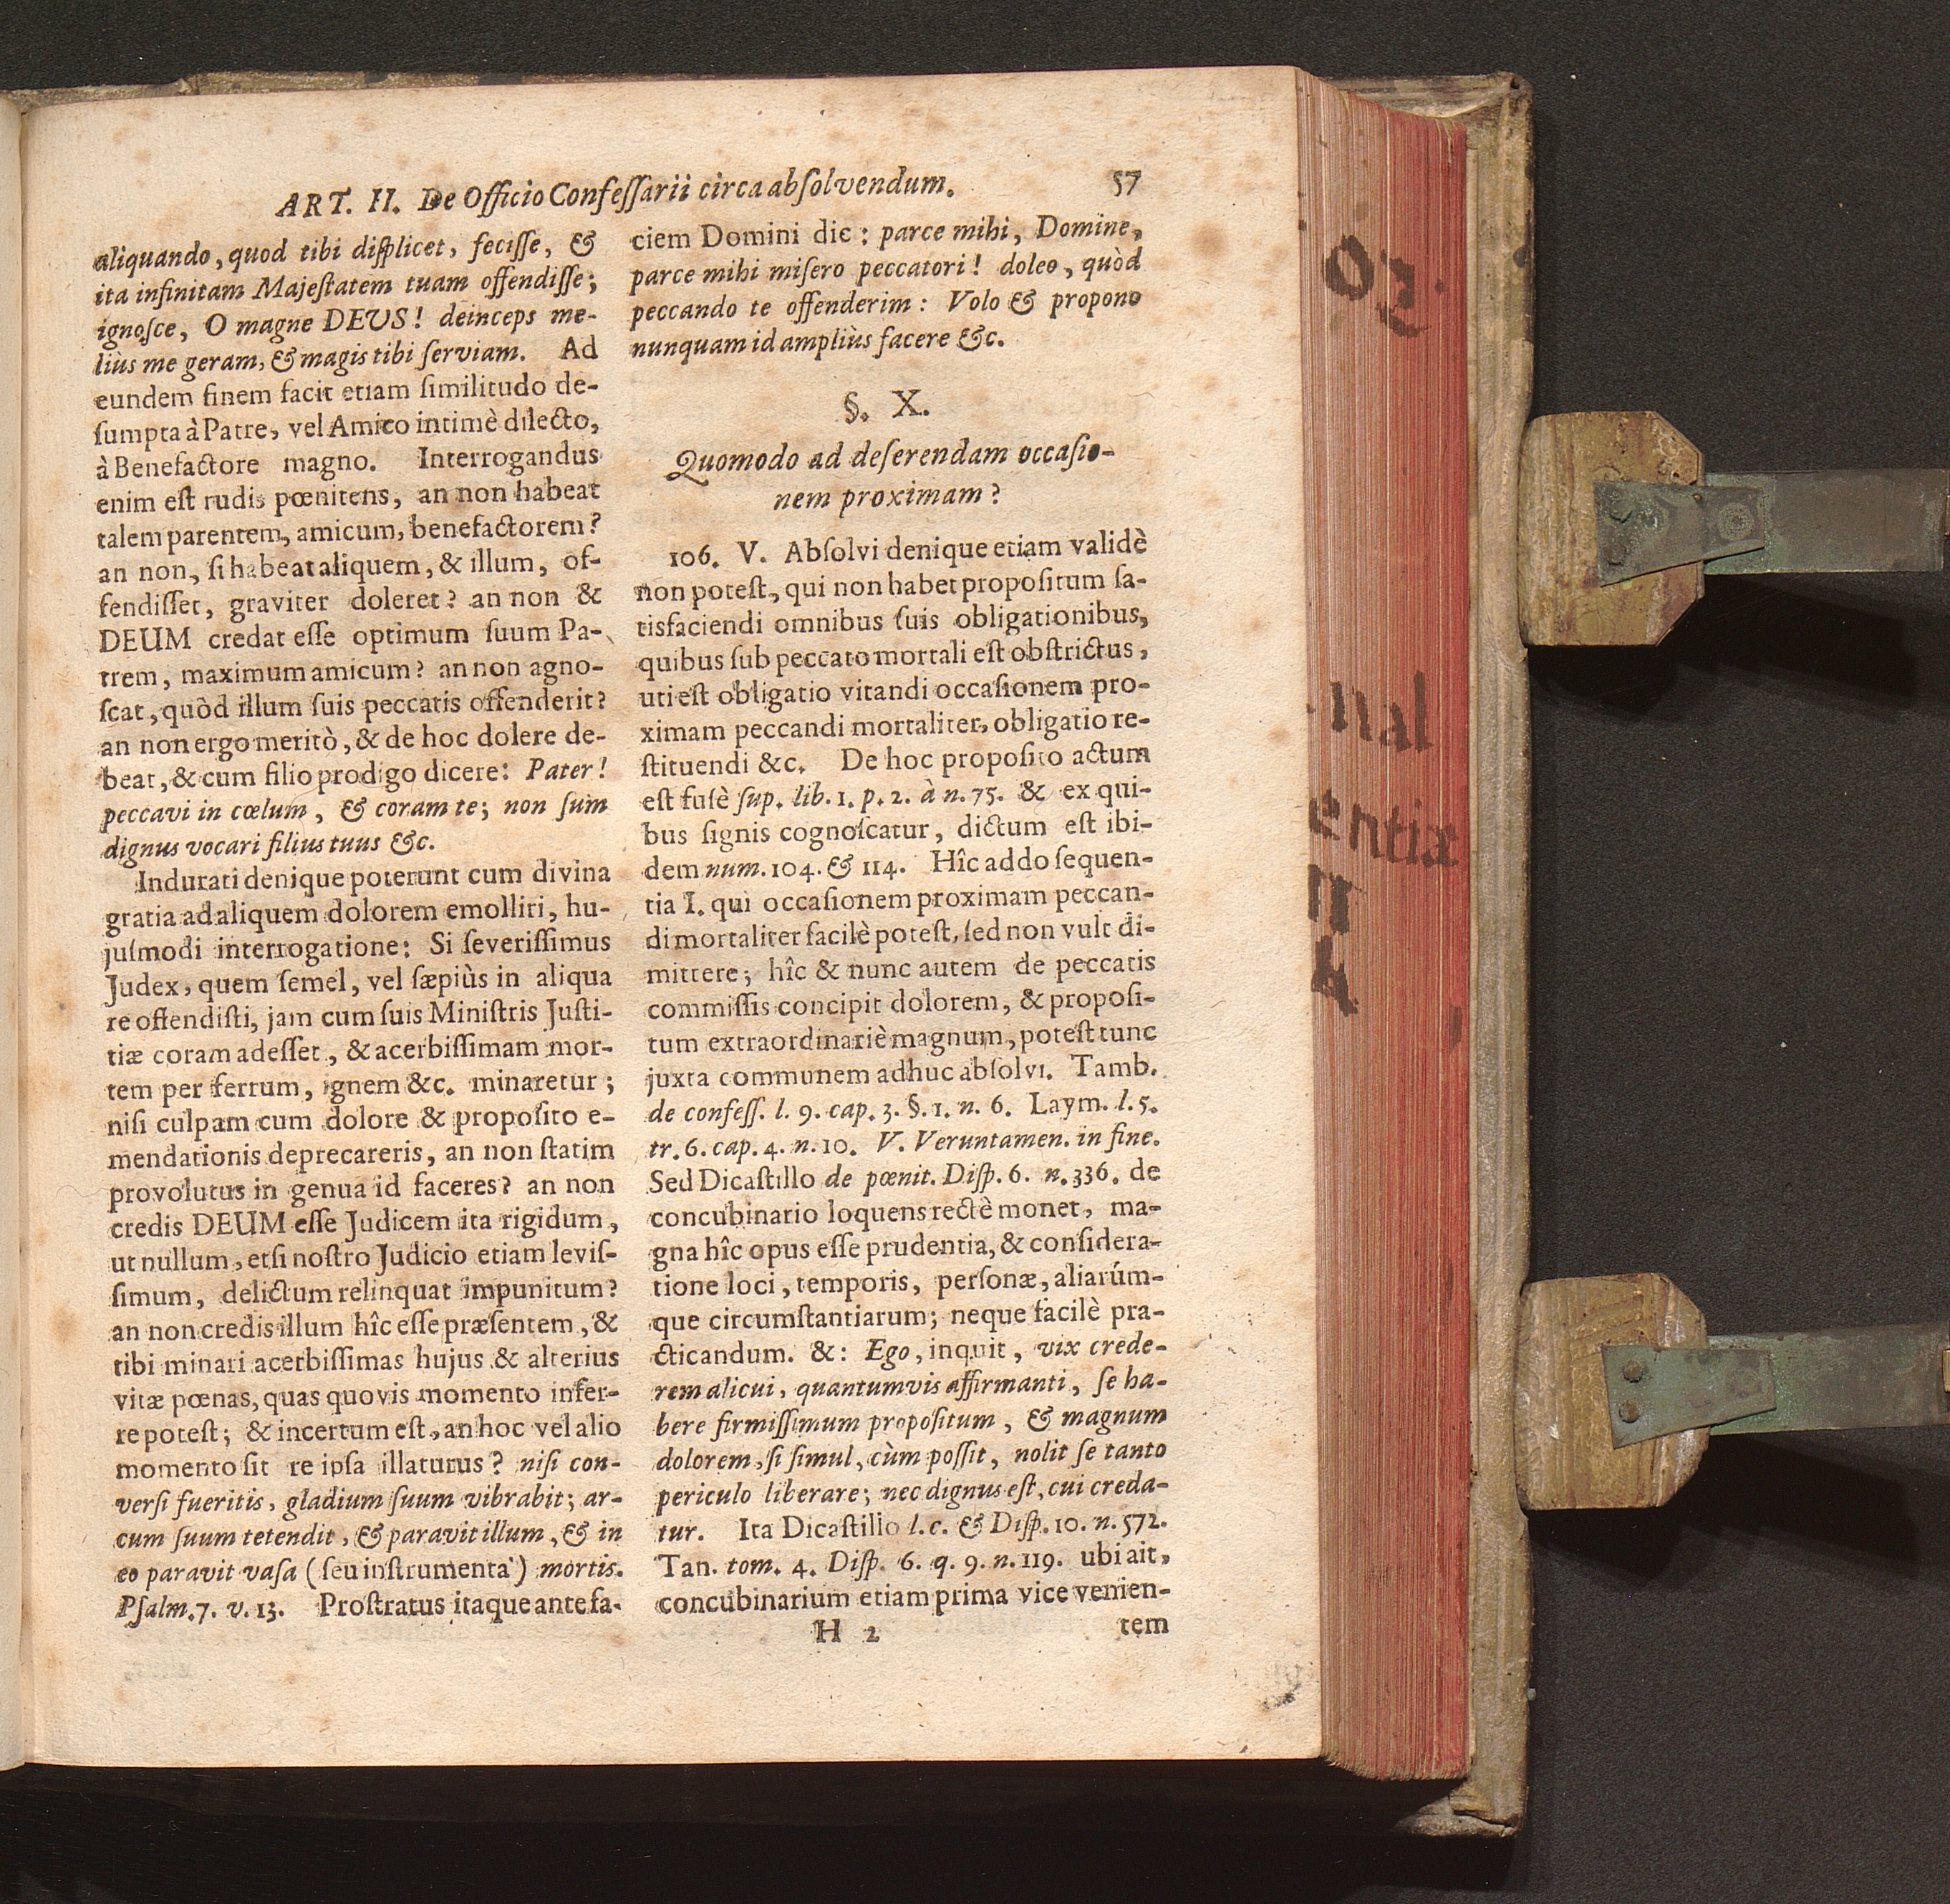 ART. II. De Officio Confeſſarii circa abſolvendum. 57
aliquando, quod tibi diſplicet, feciſſe, &
ita infinitam Majeſtatem tuam offendiſſe;
ignoſce, O magne DEUS! deinceps me-
liùs me geram, & magis tibi ſerviam. Ad
eundem finem facit etiam ſimilitudo de-
ſumpta à Patre, vel Amico intimè dilecto,
à Benefactore magno. Interrogandus
enim eſt rudis pœnitens, an non habeat
talem parentem, amicum, benefactorem?
an non, ſi habeat aliquem, & illum, of-
fendiſſet, graviter doleret? an non &
DEUM credat eſſe optimum ſuum Pa-
trem, maximum amicum? an non agno-
ſcat, quòd illum ſuis peccatis offenderit?
an non ergo meritò, & de hoc dolere de-
beat, & cum filio prodigo dicere: Pater!
peccavi in cœlum, & coram te; non ſum
dignus vocari filius tuus &c.
Indurati denique poterunt cum divina
gratia ad aliquem dolorem emolliri, hu-
juſmodi interrogatione: Si ſeveriſſimus
Judex, quem ſemel, vel ſæpiùs in aliqua
re offendiſti, jam cum ſuis Miniſtris Juſti-
tiæ coram adeſſet, & acerbiſſimam mor-
tem per ferrum, ignem &c. minaretur;
niſi culpam cum dolore & propoſito e-
mendationis deprecareris, an non ſtatim
provolutus in genua id faceres? an non
credis DEUM eſſe Judicem ita rigidum,
ut nullum, etſi noſtro Judicio etiam leviſ-
ſimum, delictum relinquat impunitum?
an non credis illum hîc eſſe præſentem, &
tibi minari acerbiſſimas hujus & alterius
vitæ pœnas, quas quovis momento infer-
re poteſt; & incertum eſt, an hoc vel alio
momento ſit re ipſa illaturus? niſi con-
verſi fueritis, gladium ſuum vibrabit; ar-
cum ſuum tetendit, & paravit illum, & in
eo paravit vaſa (ſeu inſtrumenta) mortis.
Pſalm. 7. v. 13. Proſtratus itaque ante fa-
ciem Domini dic: parce mihi, Domine,
parce mihi miſero peccatori! doleo, quòd
peccando te offenderim: Volo & propono
nunquam id ampliùs facere &c.
§. X.
Quomodo ad deſerendam occaſio-
nem proximam?
106. V. Abſolvi denique etiam validè
non poteſt, qui non habet propoſitum ſa-
tisfaciendi omnibus ſuis obligationibus,
quibus ſub peccato mortali eſt obſtrictus,
uti eſt obligatio vitandi occaſionem pro-
ximam peccandi mortaliter, obligatio re-
ſtituendi &c. De hoc propoſito actum
eſt fuſè ſup. lib. 1. p. 2. à n. 75. & ex qui-
bus ſignis cognoſcatur, dictum eſt ibi-
dem num. 104. & 114. Hîc addo ſequen-
tia I. qui occaſionem proximam peccan-
di mortaliter facilè poteſt, ſed non vult di-
mittere; hîc & nunc autem de peccatis
commiſſis concipit dolorem, & propoſi-
tum extraordinariè magnum, poteſt tunc
juxta communem adhuc abſolvi. Tamb.
de confeſſ. l. 9. cap. 3. §. 1. n. 6. Laym. l. 5.
tr. 6. cap. 4. n. 10. V. Veruntamen. in fine.
Sed Dicaſtillo de pœnit. Diſp. 6. n. 336. de
concubinario loquens rectè monet, ma-
gna hîc opus eſſe prudentia, & conſidera-
tione loci, temporis, perſonæ, aliarúm-
que circumſtantiarum; neque facilè pra-
cticandum. &: Ego, inquit, vix crede-
rem alicui, quantumvis affirmanti, ſe ha-
bere firmiſſimum propoſitum, & magnum
dolorem, ſi ſimul, cùm poſſit, nolit ſe tanto
periculo liberare; nec dignus eſt, cui creda-
tur. Ita Dicaſtillo l. c. & Diſp. 10. n. 572.
Tan. tom. 4. Diſp. 6. q. 9. n. 119. ubi ait,
concubinarium etiam prima vice venien-
H 2 tem
nal
entiæ
II